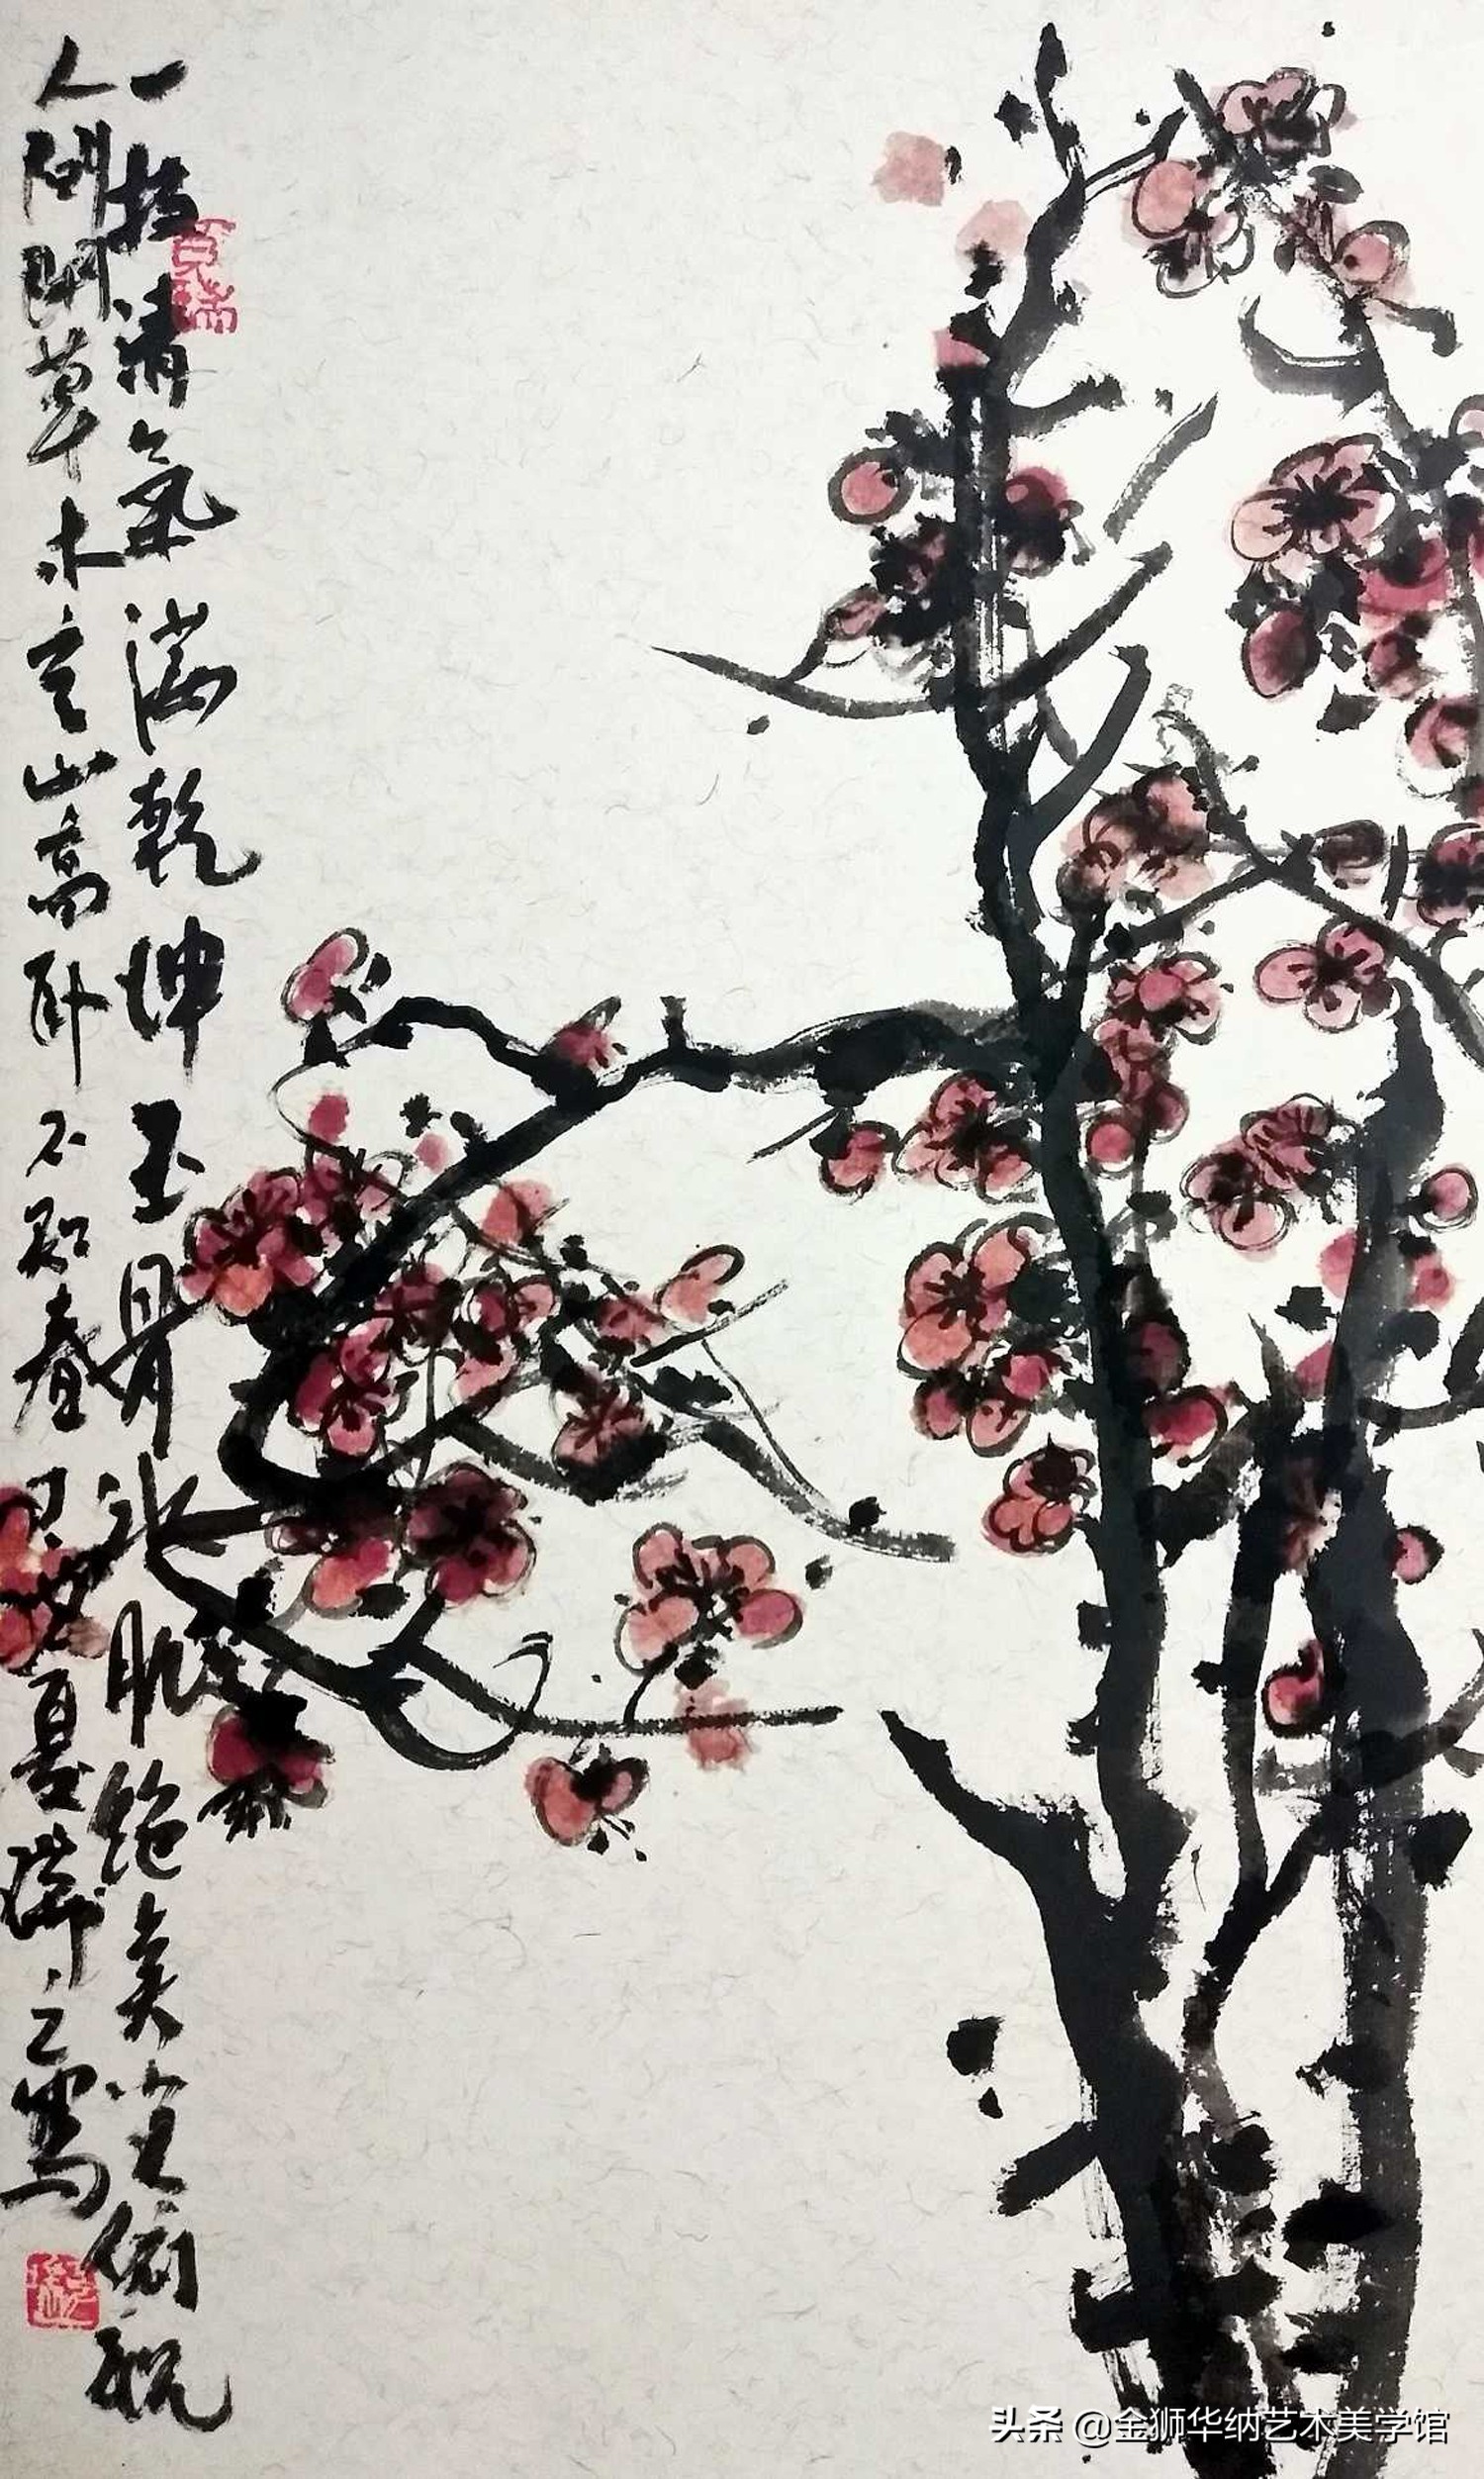 一枝清氣满乾坤玉骨冰肌绝矣尘俯視
人间閒草木空山高卧不知春 夏瑞之寫
夏瑞
头条 @金狮华纳艺术美学馆